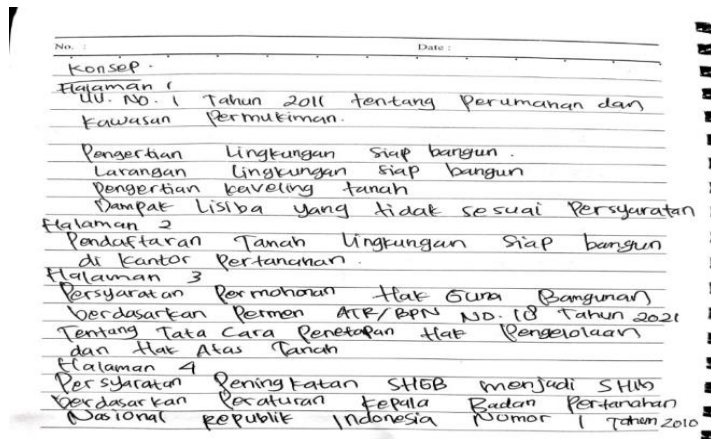 No. :
Date :
Konsep.
Halaman 1
UU. No. 1 Tahun 2011 tentang Perumahan dan
Kawasan Permukiman.
Pengertian Lingkungan Siap bangun.
Larangan Lingkungan siap bangun
Pengertian kaveling tanah
Dampak Lisiba yang tidak sesuai Persyaratan
Halaman 2
Pendaftaran Tanah Lingkungan Siap bangun
di Kantor Pertanahan.
Halaman 3
Persyaratan Permohonan Hak Guna Bangunan
berdasarkan Permen ATR/BPN NO. 18 Tahun 2021
Tentang Tata Cara Penetapan Hak Pengelolaan
dan Hak Atas Tanah
Halaman 4
Persyaratan Peningkatan SHGB menjadi SHM
berdasarkan Peraturan Kepala Badan Pertanahan
Nasional Republik Indonesia Nomor 1 Tahun 2010